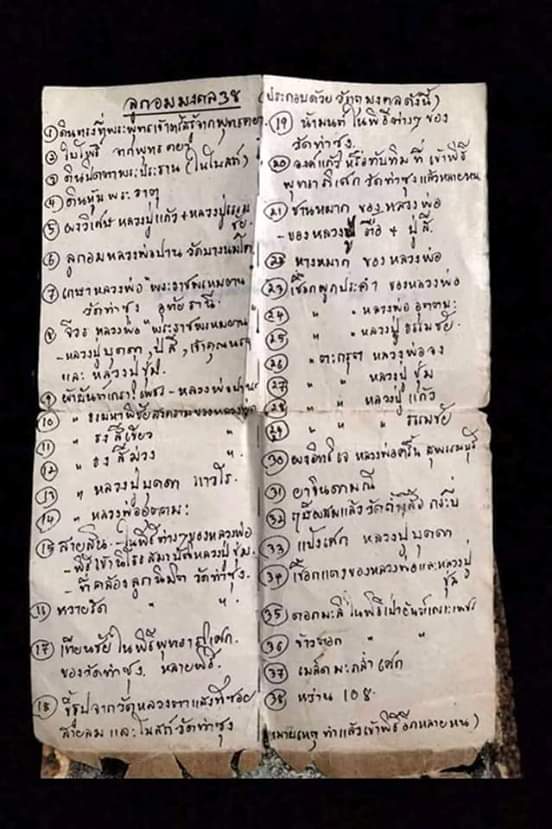 ลูกอมมงคล38 (ประกอบด้วย วัตถุมงคลดังนี้)
① ดินตรงที่พระพุทธเจ้าตรัสรู้จากพุทธคยา
② ใบโพธิ์ จากพุทธคยา
③ ดินปิดตาพระประธาน (ในโบสถ์)
④ ดินหุ้มพระธาตุ
⑤ ผงวิเศษหลวงปู่แก้ว + หลวงปู่ธรรมชัย
⑥ ลูกอมหลวงพ่อปาน วัดบางนมโค
⑦ เกษาหลวงพ่อ พระราชพรหมยาน
วัดท่าซุง อุทัยธานี.
⑧ จีวร หลวงพ่อ พระราชพรหมยาน
- หลวงปู่บุดดา, ปู่สี, เจ้าคุณนรฯ
และ หลวงปู่ชุ่ม.
⑨ ผ้ายันต์เกราะเพชร - หลวงพ่อปาน
⑩ " ธงมหาพิชัยสงครามของหลวงพ่อ
⑪ " ธงสีเขียว "
⑫ " ธงสีม่วง ".
⑬ " หลวงปู่บุดดา ถาวโร.
⑭ " หลวงพ่ออุตตมะ
⑮ สายสิน - ในพิธีต่างๆของหลวงพ่อ
- พิธีเข้านิโรธสมาบัติหลวงปู่ชุ่ม.
- ที่คล้องลูกนิมิต วัดท่าซุง.
⑯ หวายรัด " ".
⑰ เทียนชัย ในพิธีพุทธาภิเศก.
ของวัดท่าซุง. หลายพิธี.
⑱ ขี้ธูปจากวัดหลวงตาแสงที่ซอย
สายลม และโบสถ์วัดท่าซุง
⑲ น้ำมนต์ ในพิธีต่างๆ ของ
วัดท่าซุง.
⑳ องค์แก้ว หรือทับทิม ที่เข้าพิธี
พุทธาภิเศก วัดท่าซุงแล้วหลายหน
㉑ ชานหมาก ของหลวงพ่อ
- ของหลวงปู่ ตื้อ + ปู่สี.
㉒ หางหมาก ของหลวงพ่อ
㉓ เชือกผูกประคำ ของหลวงพ่อ
㉔ " " หลวงพ่ออุตตมะ
㉕ " " หลวงปู่ธรรมชัย.
㉖ " ตะกรุด หลวงพ่อจง
㉗ " " หลวงปู่ชุ่ม
㉘ " " หลวงปู่แก้ว
㉙ " " " ธรรมชัย
㉚ ผงอิทธิเจ หลวงพ่อขอม สุพรรณบุรี
㉛ ยาจินดามณี
㉝ แป้งเศก หลวงปู่บุดดา
㉞ เชือกแดงของหลวงพ่อและหลวงปู่
ชุ่ม
㉟ ดอกมะลิ ในพิธีเป่ายันต์เกราะเพชร
㊱ ข้าวตอก " "
㊲ เมล็ดมะกล่ำเศก
㊳ หว่าน 108.
(หมายเหตุ ทำแล้วเข้าพิธีอีกหลายหน)